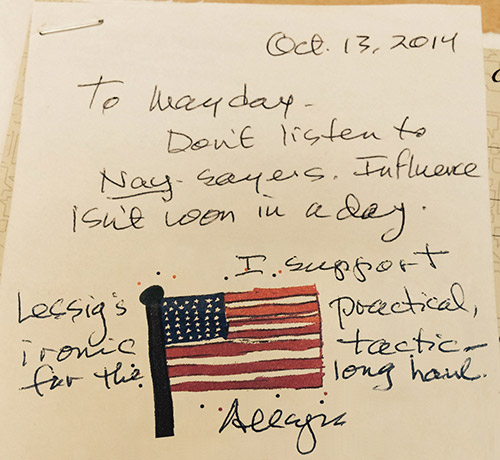 Oct. 13, 2014
To Mayday-
Don't listen to
Nay-sayers. Influence
isn't won in a day.
I support
Lessig's practical,
ironic tactic—
for the long haul.